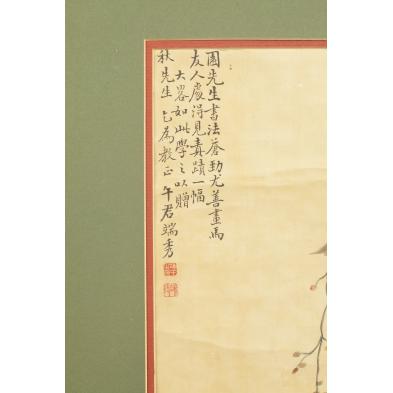 園先生書法蒼勁尤善畫馬
友人處得見真蹟一幅
大畧如此學之以贈
秋先生 乞為教正 午君端秀